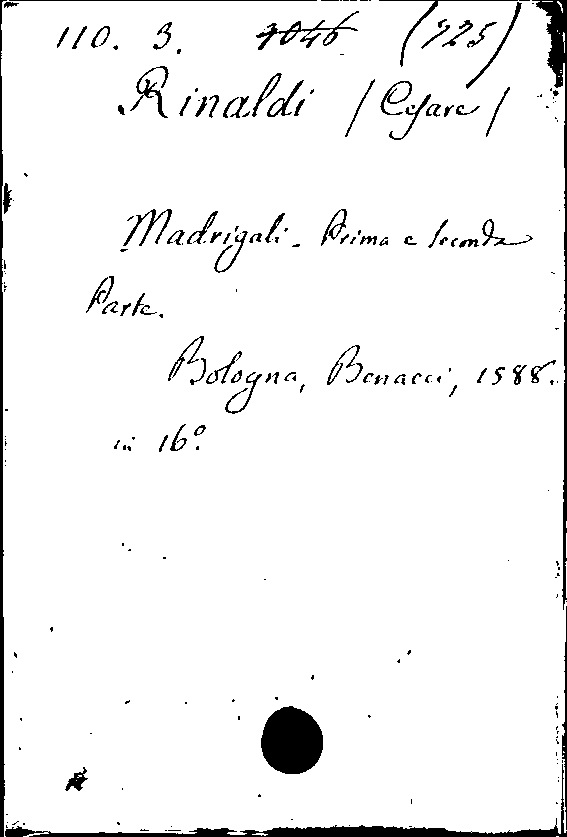 110. 3. 4046 (725)
Rinaldi / Cesare /
Madrigali - Prima e Seconda
Parte.
Bologna, Benacci, 1588.
in 16º.